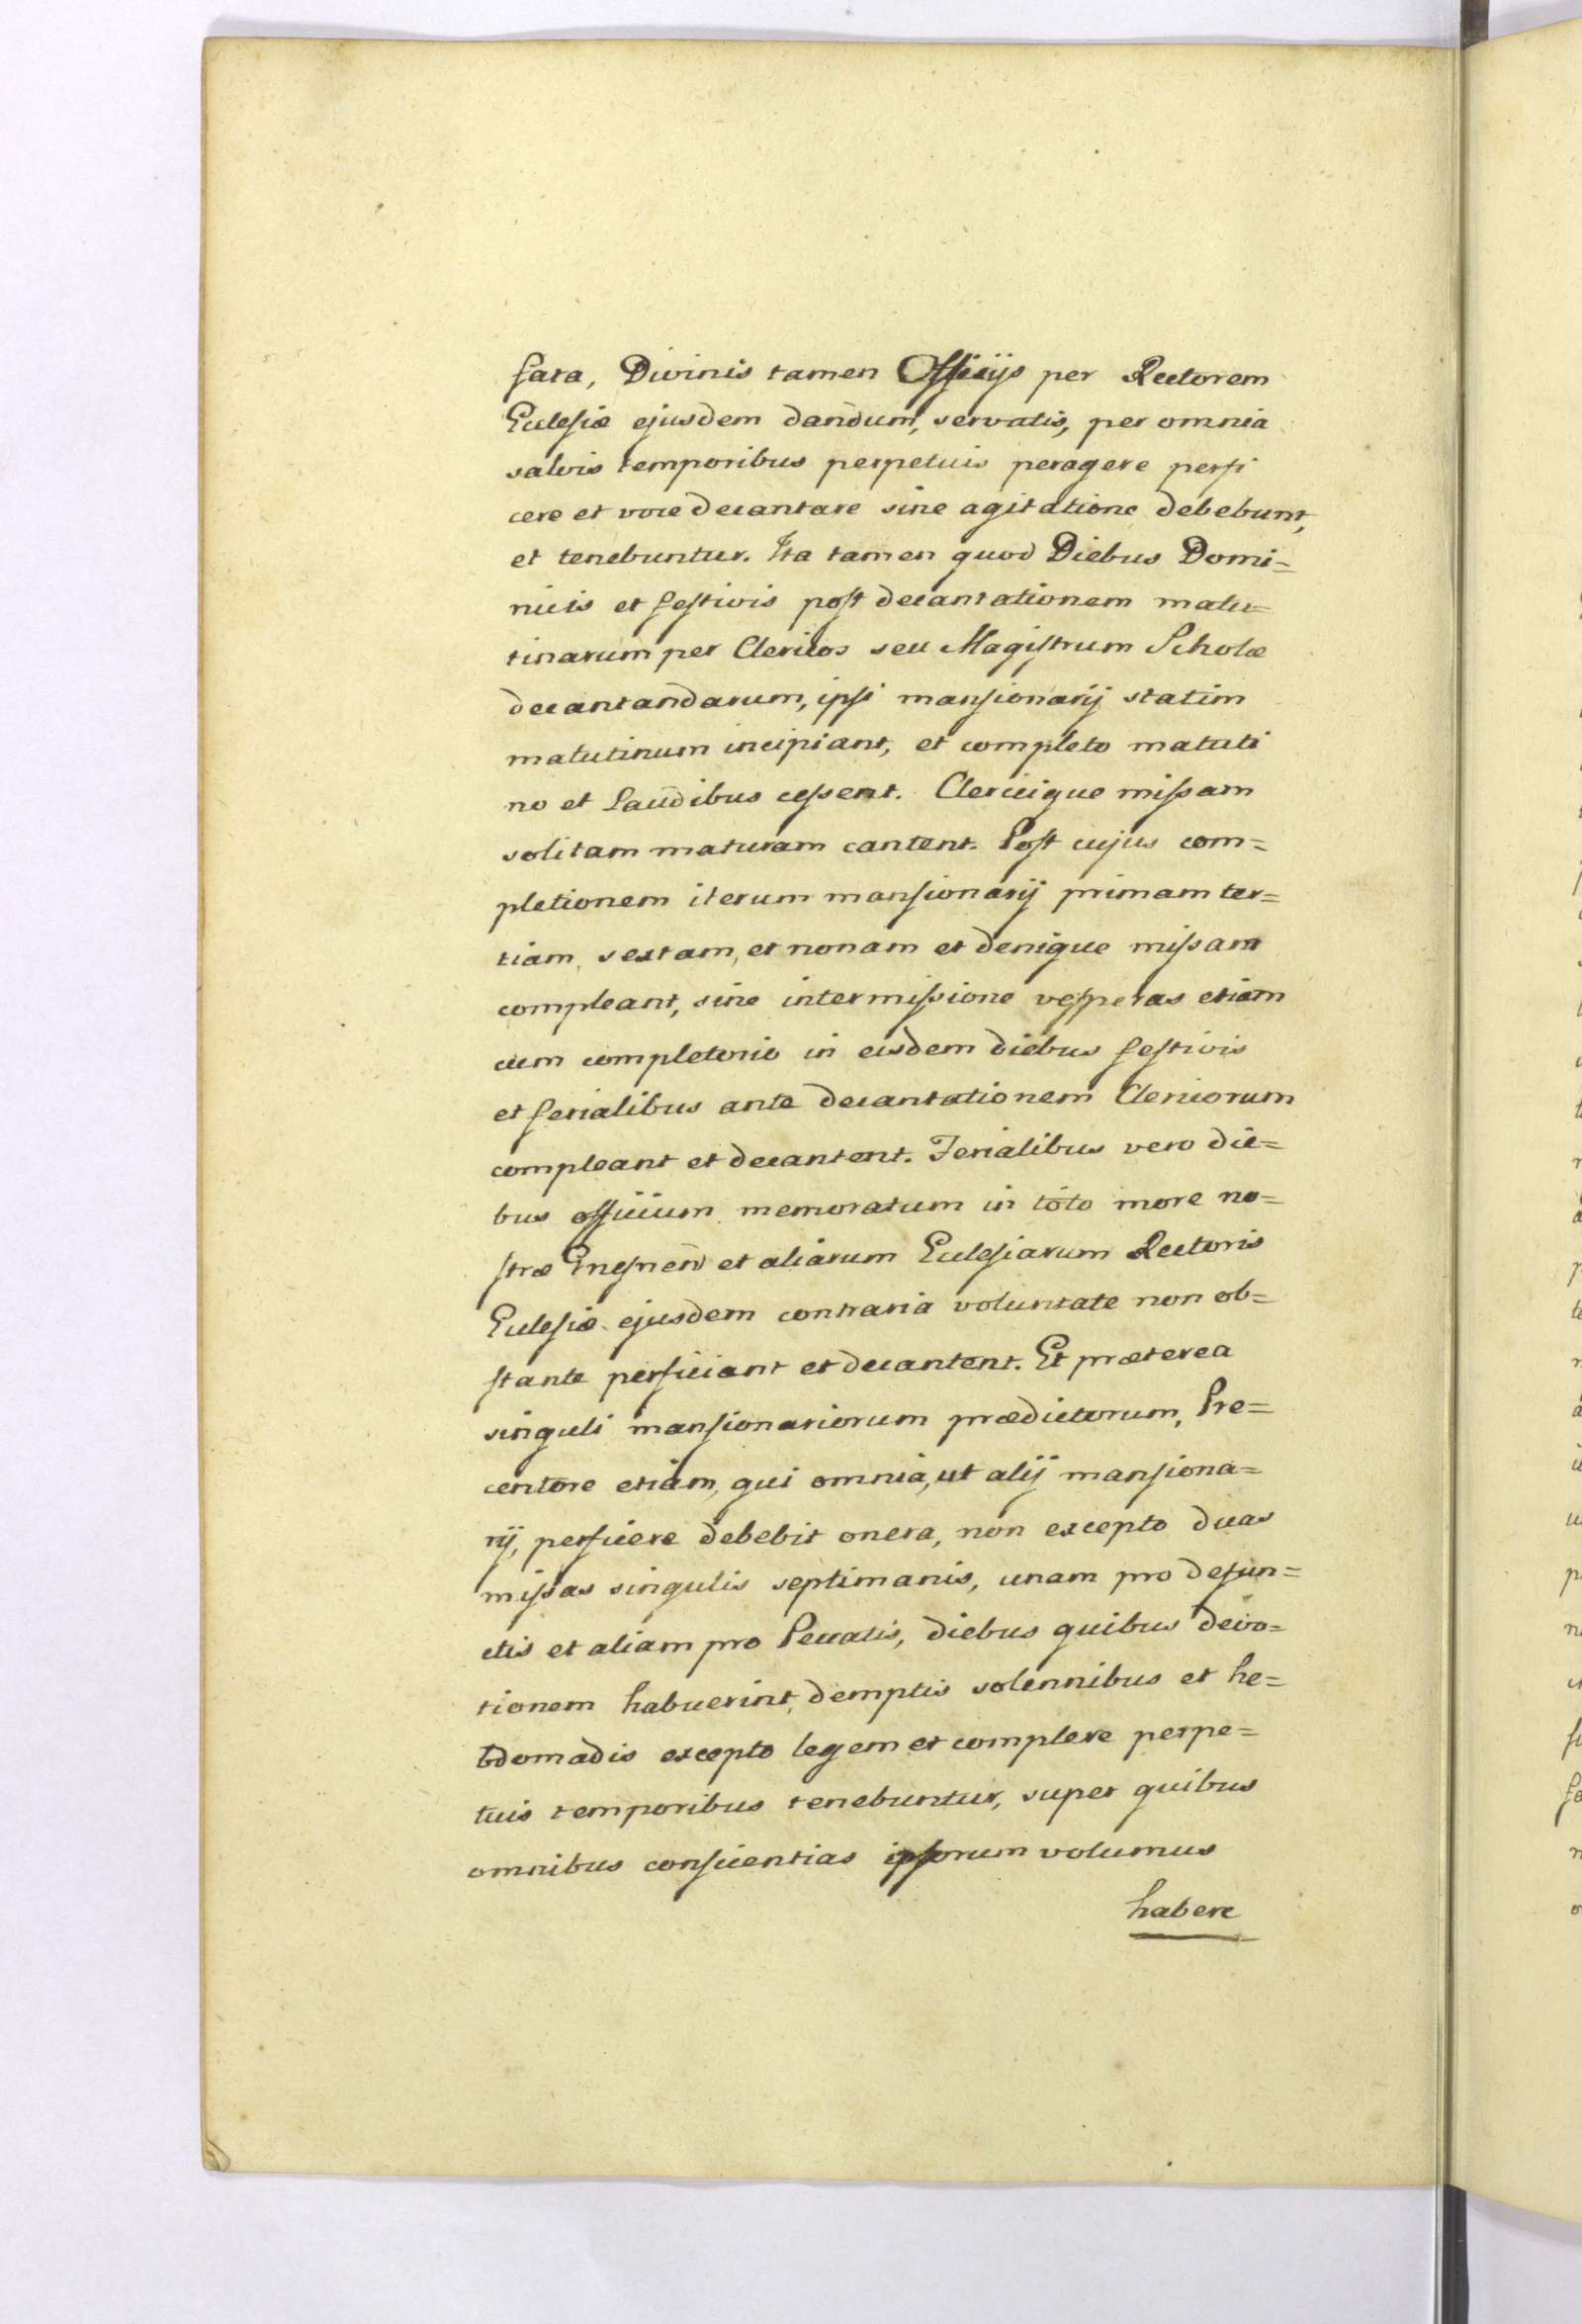 fata, Divinis tamen Officijs per Rectorem
Ecclesiæ ejusdem dandum, servatis, per omnia
salvis temporibus perpetuis peragere perfi
cere et voce decantare sine agitatione debebunt,
et tenebuntur. Ita tamen quod Diebus Domi=
nicis et festivis post decantationem matu=
tinarum per Clericos seu Magistrum Scholæ
decantandarum, ipsi mansionarij statim
matutinum incipiant, et completo matuti
no et Laudibus cessent. Clericique missam
solitam maturam cantent. Post cujus com=
pletionem iterum mansionarij primam ter=
tiam, sextam, et nonam et denique missam
compleant, sine intermissione vesperas etiam
cum completorio in eisdem diebus festivis
et ferialibus ante decantationem Clericorum
compleant et decantent. Ferialibus vero die=
bus officium memoratum in toto more no=
stræ Gnesnen et aliarum Ecclesiarum Rectoris
Ecclesiæ ejusdem contraria voluntate non ob=
stante perficiant et decantent. Et præterea
singuli mansionariorum prædictorum, Pre=
centore etiam, qui omnia, ut alij mansiona=
rij, perficere debebit onera, non excepto duas
missas singulis septimanis, unam pro defun=
ctis et aliam pro Peccatis, diebus quibus devo=
tionem habuerint, demptis solennibus et he=
bdomadis excepto legem et complere perpe=
tuis temporibus tenebuntur, super quibus
omnibus conscientias ipsorum volumus
habere